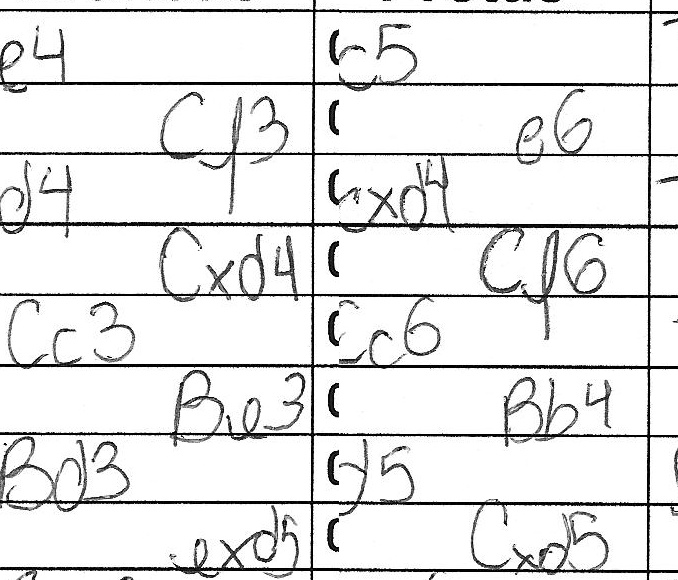 e4 c5
Cf3 e6
d4 cxd4
Cxd4 Cf6
Cc3 Cc6
Be3 Bb4
Bd3 d5
exd5 Cxd5